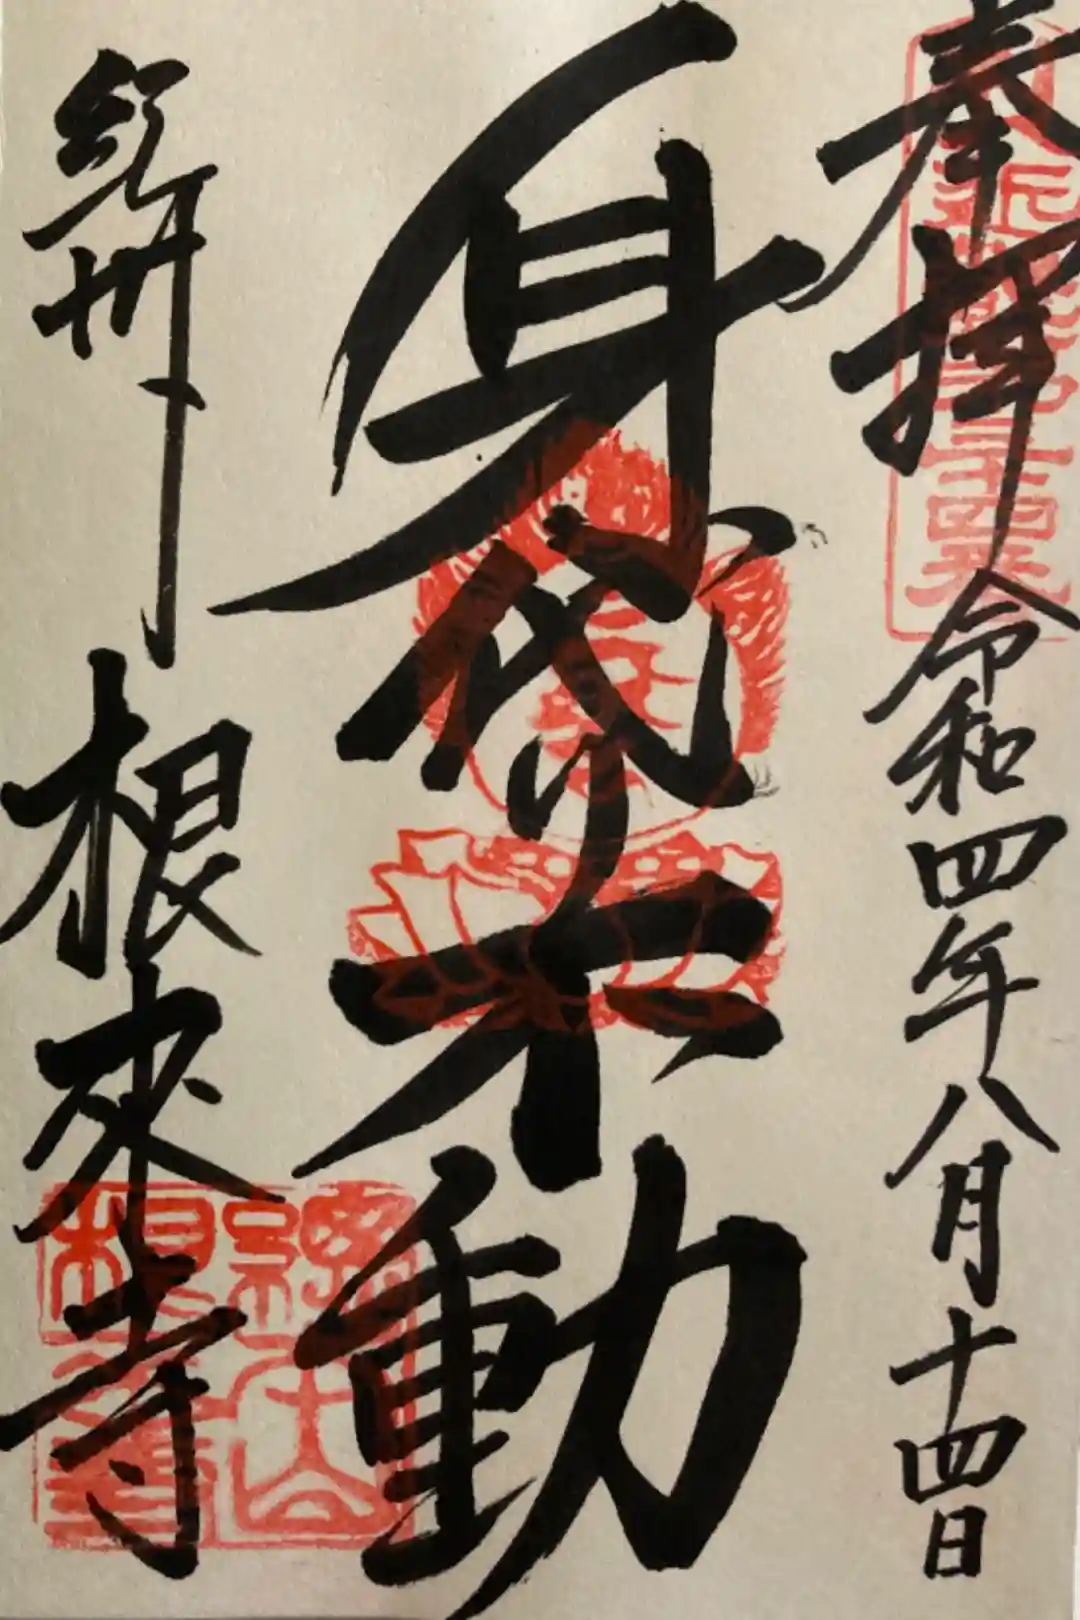 奉拝 令和四年八月十四日
身代り不動
紀州 根来寺